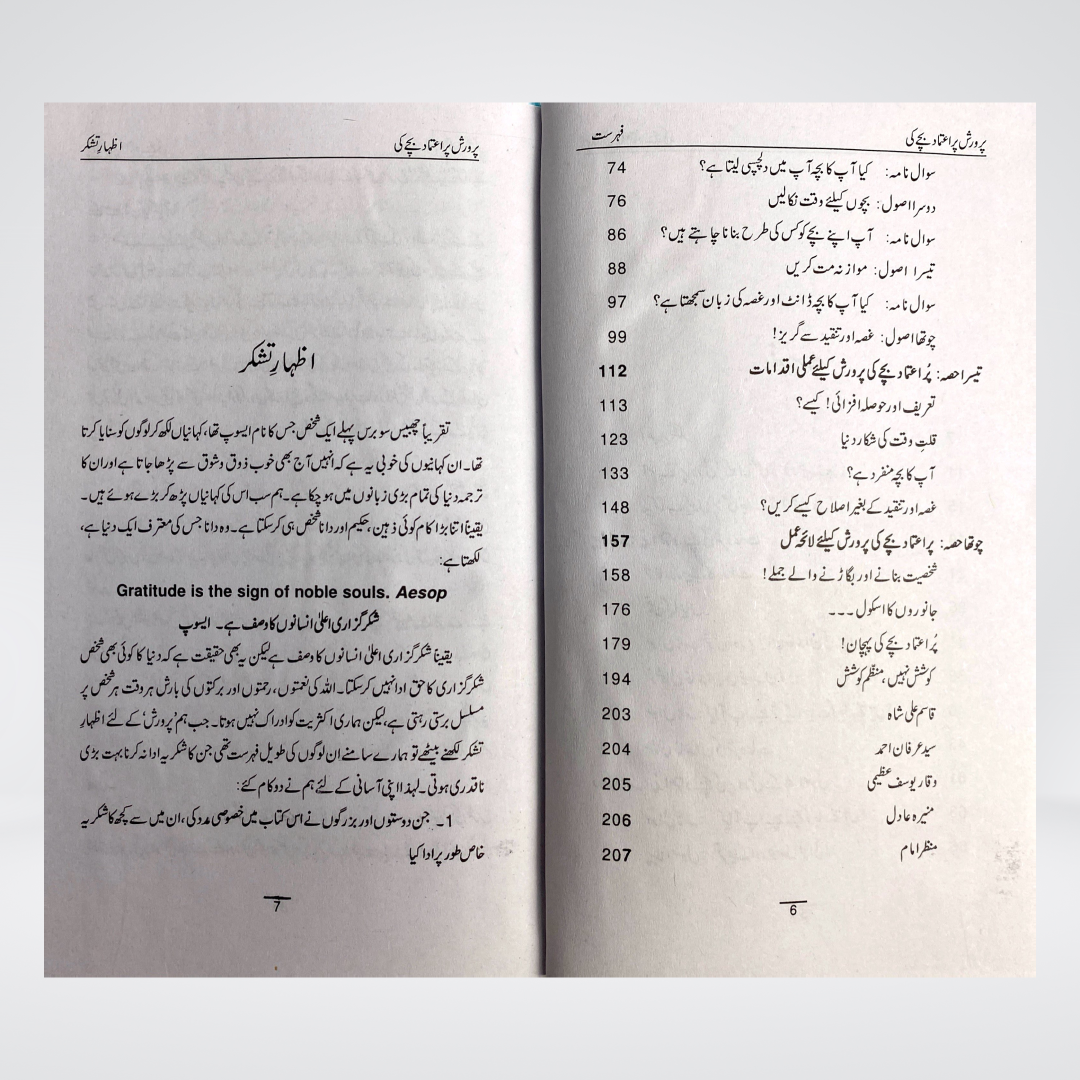 پرورش پراعتماد بچے کی فہرست
سوال نامہ: کیا آپ کا بچہ آپ میں دلچسپی لیتا ہے؟ 74
دوسرا اصول: بچوں کیلئے وقت نکالیں 76
سوال نامہ: آپ اپنے بچے کو کس کی طرح بنانا چاہتے ہیں؟ 86
تیسرا اصول: موازنہ مت کریں 88
سوال نامہ: کیا آپ کا بچہ ڈانٹ اور غصہ کی زبان سمجھتا ہے؟ 97
چوتھا اصول: غصہ اور تنقید سے گریز! 99
تیسرا حصہ: پُراعتماد بچے کی پرورش کیلئے عملی اقدامات 112
تعریف اور حوصلہ افزائی! کیسے؟ 113
قلتِ وقت کی شکار دنیا 123
آپ کا بچہ منفرد ہے؟ 133
غصہ اور تنقید کے بغیر اصلاح کیسے کریں؟ 148
چوتھا حصہ: پراعتماد بچے کی پرورش کیلئے لائحہ عمل 157
شخصیت بنانے اور بگاڑنے والے جملے! 158
جانوروں کا اسکول ۔۔۔ 176
پُراعتماد بچے کی پہچان! 179
کوشش نہیں، منظّم کوشش 194
قاسم علی شاہ 203
سید عرفان احمد 204
وقار یوسف عظیمی 205
منیرہ عادل 206
منظر امام 207
6
پرورش پراعتماد بچے کی اظہارِ تشکر
اظہارِ تشکر
تقریباً چھبیس سو برس پہلے ایک شخص جس کا نام ایسوپ تھا، کہانیاں لکھ کر لوگوں کو سنایا کرتا
تھا۔ ان کہانیوں کی خوبی یہ ہے کہ انہیں آج بھی خوب ذوق و شوق سے پڑھا جاتا ہے اور ان کا
ترجمہ دنیا کی تمام بڑی زبانوں میں ہو چکا ہے۔ ہم سب اس کی کہانیاں پڑھ کر بڑے ہوئے ہیں۔
یقیناً اتنا بڑا کام کوئی ذہین، حکیم اور دانا شخص ہی کرسکتا ہے۔ وہ دانا جس کی معترف ایک دنیا ہے،
لکھتا ہے:
Gratitude is the sign of noble souls. Aesop
شکر گزاری اعلیٰ انسانوں کا وصف ہے۔ ایسوپ
یقیناً شکر گزاری اعلیٰ انسانوں کا وصف ہے لیکن یہ بھی حقیقت ہے کہ دنیا کا کوئی بھی شخص
شکر گزاری کا حق ادا نہیں کرسکتا۔ اللہ کی نعمتوں، رحمتوں اور برکتوں کی بارش ہر وقت ہر شخص پر
مسلسل برستی رہتی ہے، لیکن ہماری اکثریت کو ادراک نہیں ہوتا۔ جب ہم ’پرورش‘ کے لئے اظہارِ
تشکر لکھنے بیٹھے تو ہمارے سامنے ان لوگوں کی طویل فہرست تھی جن کا شکریہ ادا نہ کرنا بہت بڑی
ناقدری ہوتی۔ لہٰذا اپنی آسانی کے لئے ہم نے دو کام کئے:
1۔ جن دوستوں اور بزرگوں نے اس کتاب میں خصوصی مدد کی، ان میں سے کچھ کا شکریہ
خاص طور پر ادا کیا
7